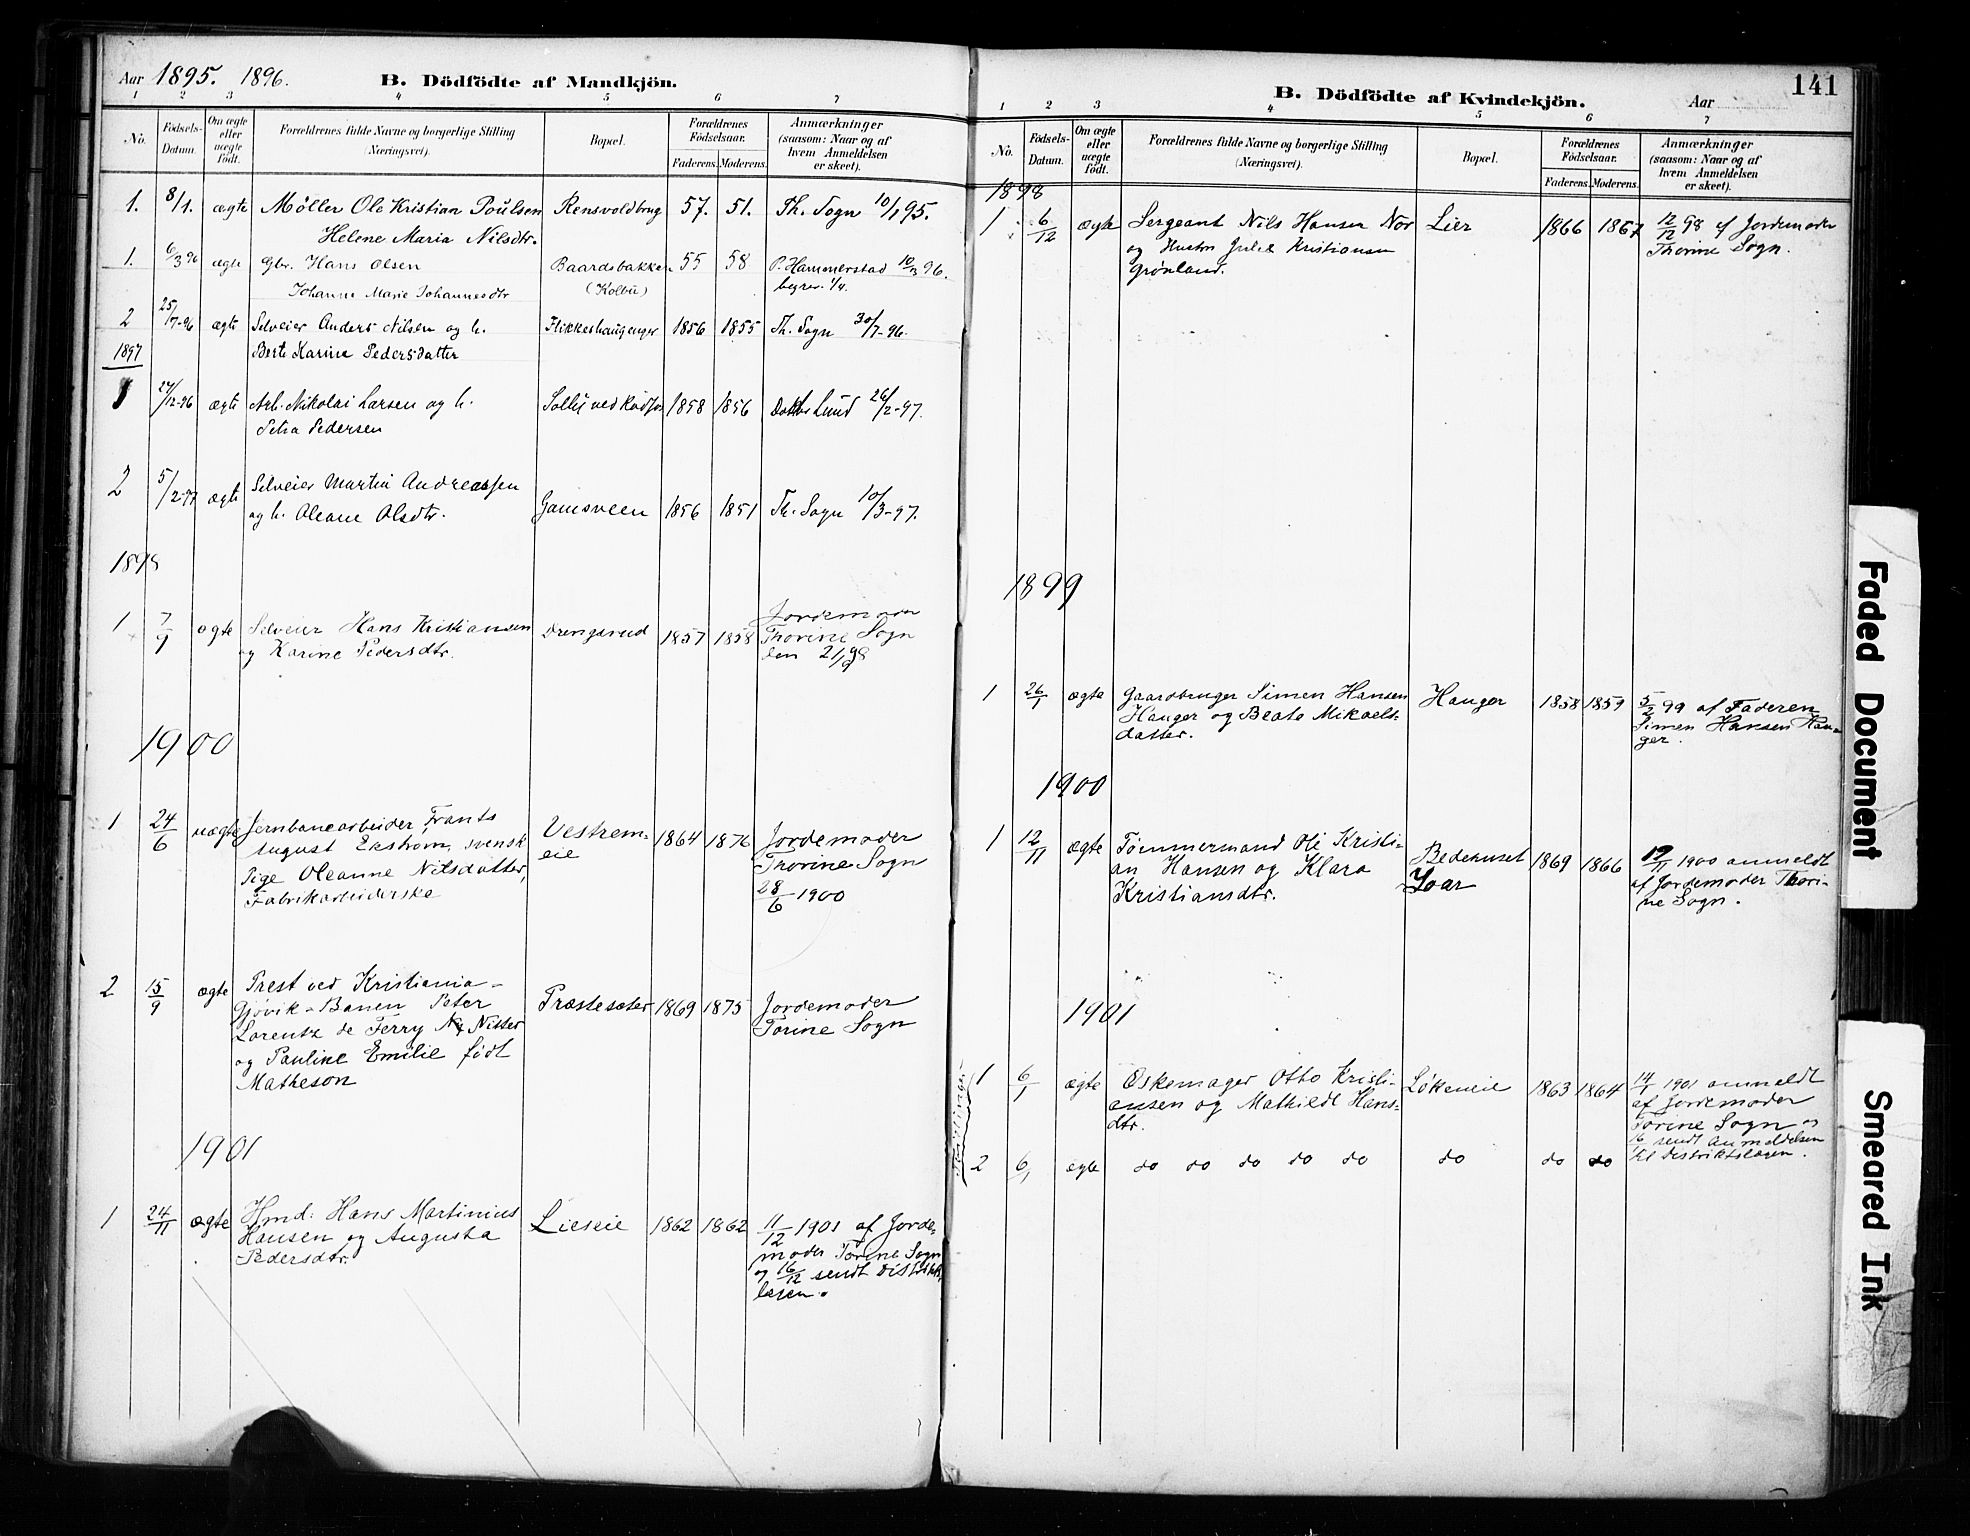 Aar 1895. 1896.
B. Dödfödte af Mandkjön.
1 2 3 4 5 6 7
No. Födsels-Datum. Om ægte eller uægte födt. Forældrenes fulde Navne og borgerlige Stilling (Næringsvei). Bopæl. Forældrenes Födselsaar. Faderens. Moderens. Anmærkninger (saasom: Naar og af hvem Anmeldelsen er skeet).
1. 8/1. ægte Möller Ole Kristian Poulsen Rensvoldbrug 57. 51. Th. Sogn 10/1 95.
Helene Maria Nilsdtr.
1. 6/3 96 ægte Gbr. Hans Olsen Baardsbakken 55 58 P. Hammerstad 10/3 96.
Johanne Marie Johannesdtr (Kolbu) begrav. 1/4.
2 25/7-96 ægte Selveier Anders Nilsen og h. Flikkeshaugenger 1856 1855 Th. Sogn 30/7-96.
1897 Berte Karine Pedersdatter
1 27/12-96 ægte Arb. Nikolai Larsen og h. Solby ved 1858 1856 Lund 26/2-97.
Petra Pedersen
2 5/2-97 ægte Selveier Martin Andreassen
og h. Oleane Olsdtr. Gamsveen 1856 1851 Th. Sogn 10/3-97.
1898
1 7/9 ægte Selveier Hans Kristiansen Drengsrud 1857 1858 Jordemoder
og Karine Pedersdtr. Thorine Sogn
den 21/9 98
1900
1 24/6 uægte Jernbanearbeider Frants Vestrem- 1864 1876 Jordemoder
August Ekström, svensk eie Thorine Sogn
Pige Oleanne Nilsdatter, 28/6 1900
Fabrikarbeiderske
2 15/9 ægte Prest ved Kristiania- Præstesæter 1869 1875 Jordemoder
Gjövik-Banen Peter Torine Sogn
Lorentz de Ferry Nitter
og Pauline Emilie født
Matheson
1901
1 24/11 ægte Hmd: Hans Martinius Lieseie 1862 1862 11/12 1901 af Jorde-
Hansen og Augusta moder Torine Sogn
Pedersdtr. og 16/12 sendt Distrikts
lægen.
141
B. Dödfödte af Kvindekjön.
Aar
1 2 3 4 5 6 7
No. Födsels-Datum. Om ægte eller uægte födt. Forældrenes fulde Navne og borgerlige Stilling (Næringsvei). Bopæl. Forældrenes Födselsaar. Faderens. Moderens. Anmærkninger (saasom: Naar og af hvem Anmeldelsen er skeet).
1898
1 6/12 ægte Sergeant Nils Hansen Nor Lier 1866 1867 12/12 98 af Jordemoder
og Hustru Julie Kristiansen Thorine Sogn.
Grönland.
1899
1 26/1 ægte Gaardbruger Simen Hansen Hauger 1858 1859 5/2 99 af Faderen
Hauger og Beate Mikaels- Simen Hansen Hau-
datter. ger.
1900
1 12/11 ægte Tömmermand Ole Kristi- Bedehuset 1869 1866 19/11 1900 anmeldt
an Hansen og Klara Loar af Jordemoder Thori-
Kristiansdtr. ne Sogn.
1901
Tvillinger
1 6/1 ægte Öskemager Otto Kristi- Lökeneie 1863 1864 14/1 1901 anmeldt
ansen og Mathilde Hans- af Jordemoder
dtr. Torine Sogn og
16/1 sendt Anmeldelsen
2 6/1 ægte do do do do do do do do til distriktslægen.
Faded Document
Smeared Ink